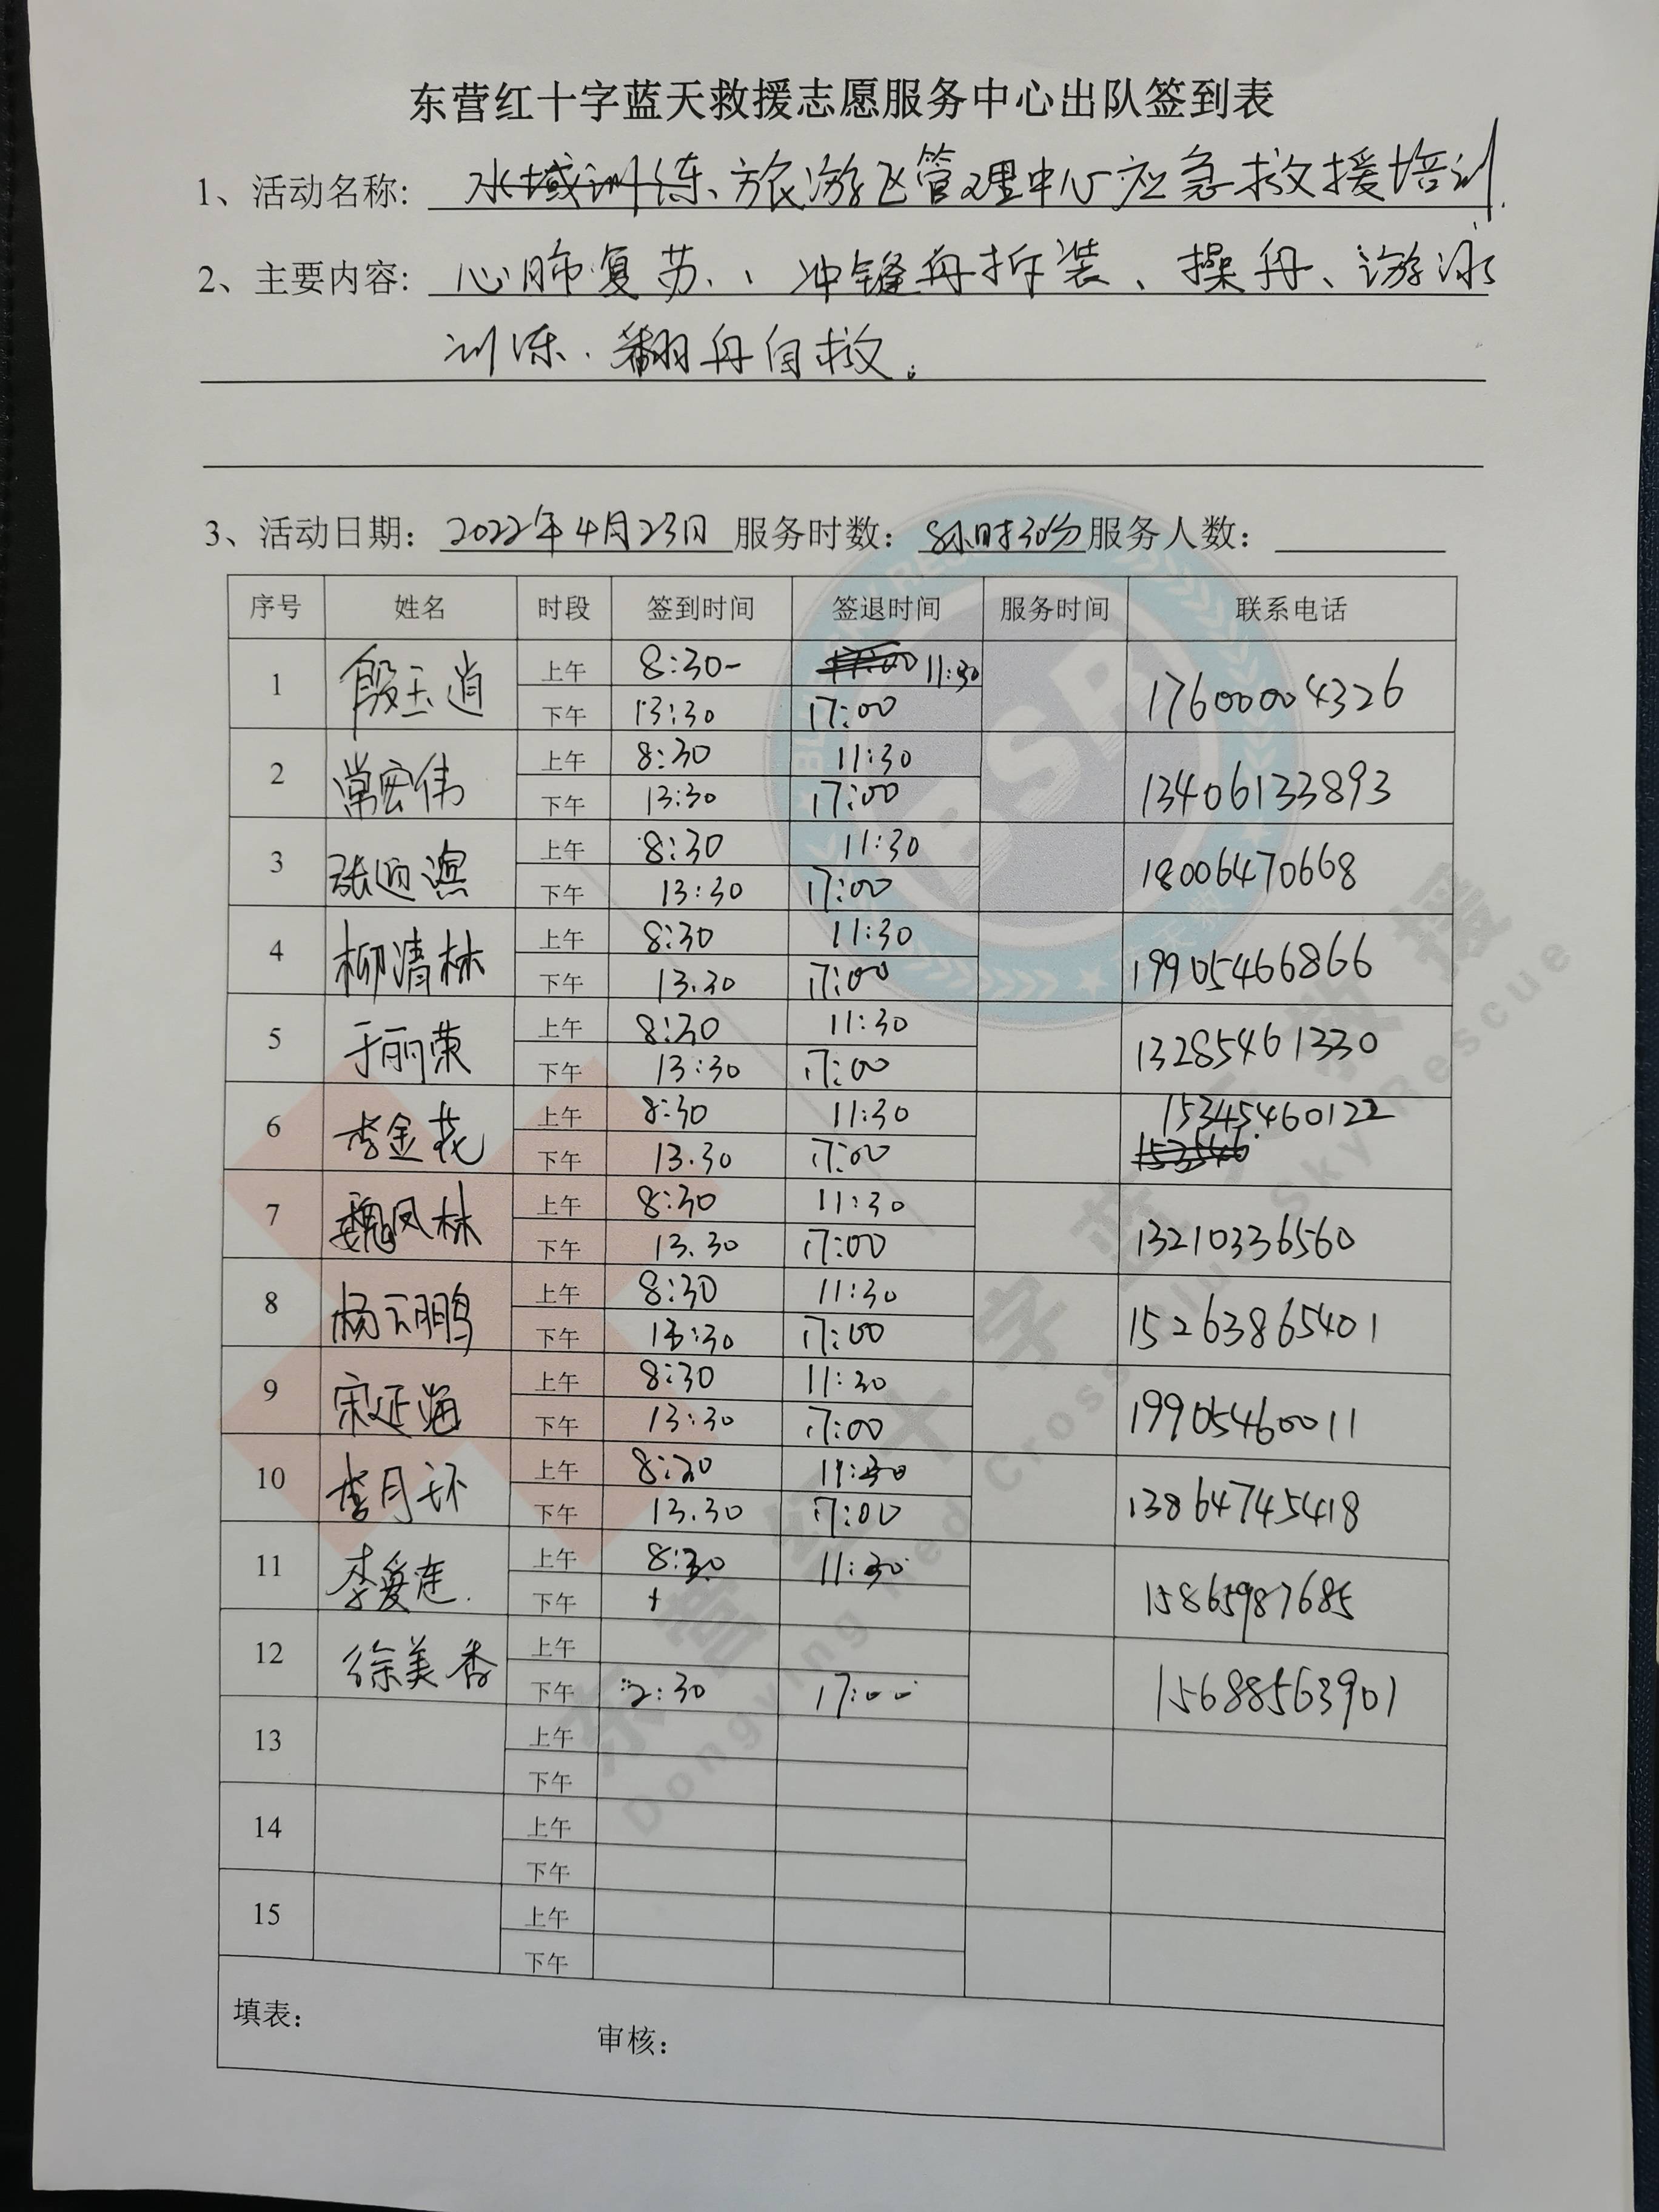 东营红十字蓝天救援志愿服务中心出队签到表
1、活动名称: 水域训练、旅游区管理中心应急救援培训
2、主要内容: 心肺复苏、、冲锋舟拆装、操舟、游泳
训练、翻舟自救。
3、活动日期: 2022年4月23日 服务时数: 8小时30分 服务人数:
序号 姓名 时段 签到时间 签退时间 服务时间 联系电话
1 殷玉道 上午 8:30- 11:30 17600004326
下午 13:30 17:00
2 常宏伟 上午 8:30 11:30 13406133893
下午 13:30 17:00
3 张迎 上午 8:30 11:30 18006470668
下午 13:30 17:00
4 柳清林 上午 8:30 11:30 19905466866
下午 13.30 17:00
5 于丽荣 上午 8:30 11:30 13285461330
下午 13:30 17:00
6 李金花 上午 8:30 11:30 15345460122
下午 13.30 17:00
7 魏凤林 上午 8:30 11:30 13210336560
下午 13.30 17:00
8 杨云鹏 上午 8:30 11:30 15263865401
下午 13:30 17:00
9 宋延海 上午 8:30 11:30 19905460011
下午 13:30 17:00
10 李月环 上午 8:30 11:30 13864745418
下午 13.30 17:00
11 李爱莲 上午 8:30 11:30 15865987685
下午
12 徐美香 上午 15688563901
下午 2:30 17:00
13 上午
下午
14 上午
下午
15 上午
下午
填表: 审核:
BSR
东营红十字蓝天救援
Dongying Red Cross Blue Sky Rescue